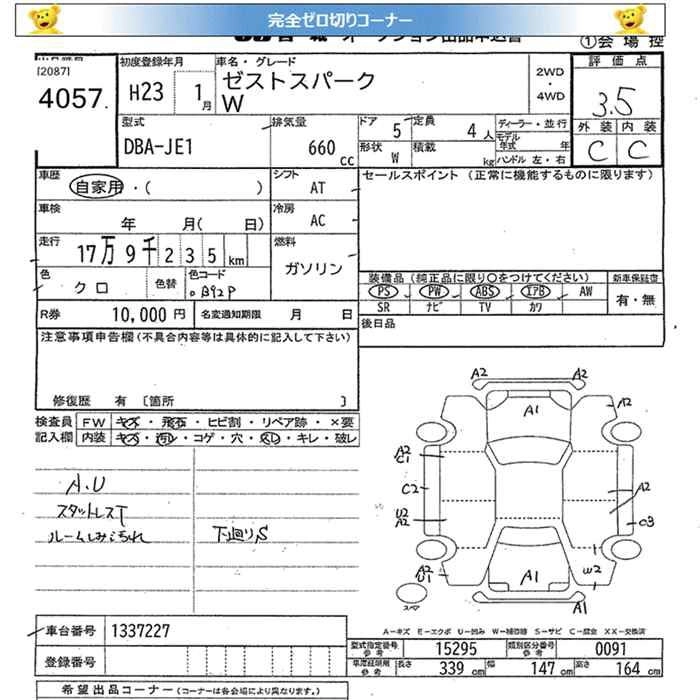 完全ゼロ切りコーナー
①会場控
[2087]
4057.
初度登録年月
H23 1月
車名・グレード
ゼストスパーク
W
2WD
・
4WD
評価点
3.5
外装 内装
C C
型式
DBA-JE1
排気量
660 cc
ドア 5
定員 4人
形状 W
積載 kg
ディーラー・並行
モデル年式 年
ハンドル 左・右
車歴
自家用・( )
シフト
AT
セールスポイント (正常に機能するものに限ります)
車検
年 月( 日)
冷房
AC
走行
17万9千235km
燃料
ガソリン
色
クロ
色替
色コード
B92P
装備品 (純正品に限り○をつけてください)
新車保証書
PS PW ABS エアB AW
有・無
SR ナビ TV カワ
R券 10,000円
名変通知期限 月 日
後日品
注意事項申告欄(不具合内容等は具体的に記入して下さい)
修復歴 有 [箇所 ]
検査員
記入欄
FW キズ・飛石・ヒビ割・リペア跡・×要
内装 キズ・汚レ・コゲ・穴・スレ・キレ・破レ
A.U
スタットレスT
ルームしみ汚れ
下廻りS
A2 A2
A1
A2
A2
C1
C2
A2
U2
A2
C3
A2
U1
W2
A1
A1
スペア
A−キズ E−エクボ U−凹み W−補修跡 S−サビ C−腐食 XX−交換済
車台番号 1337227
登録番号
型式指定番号 参考 15295
類別区分番号 参考 0091
車庫証明用 参考 長さ 339 cm 幅 147 cm 高さ 164 cm
希望出品コーナー (コーナーは各会場により異なります。)